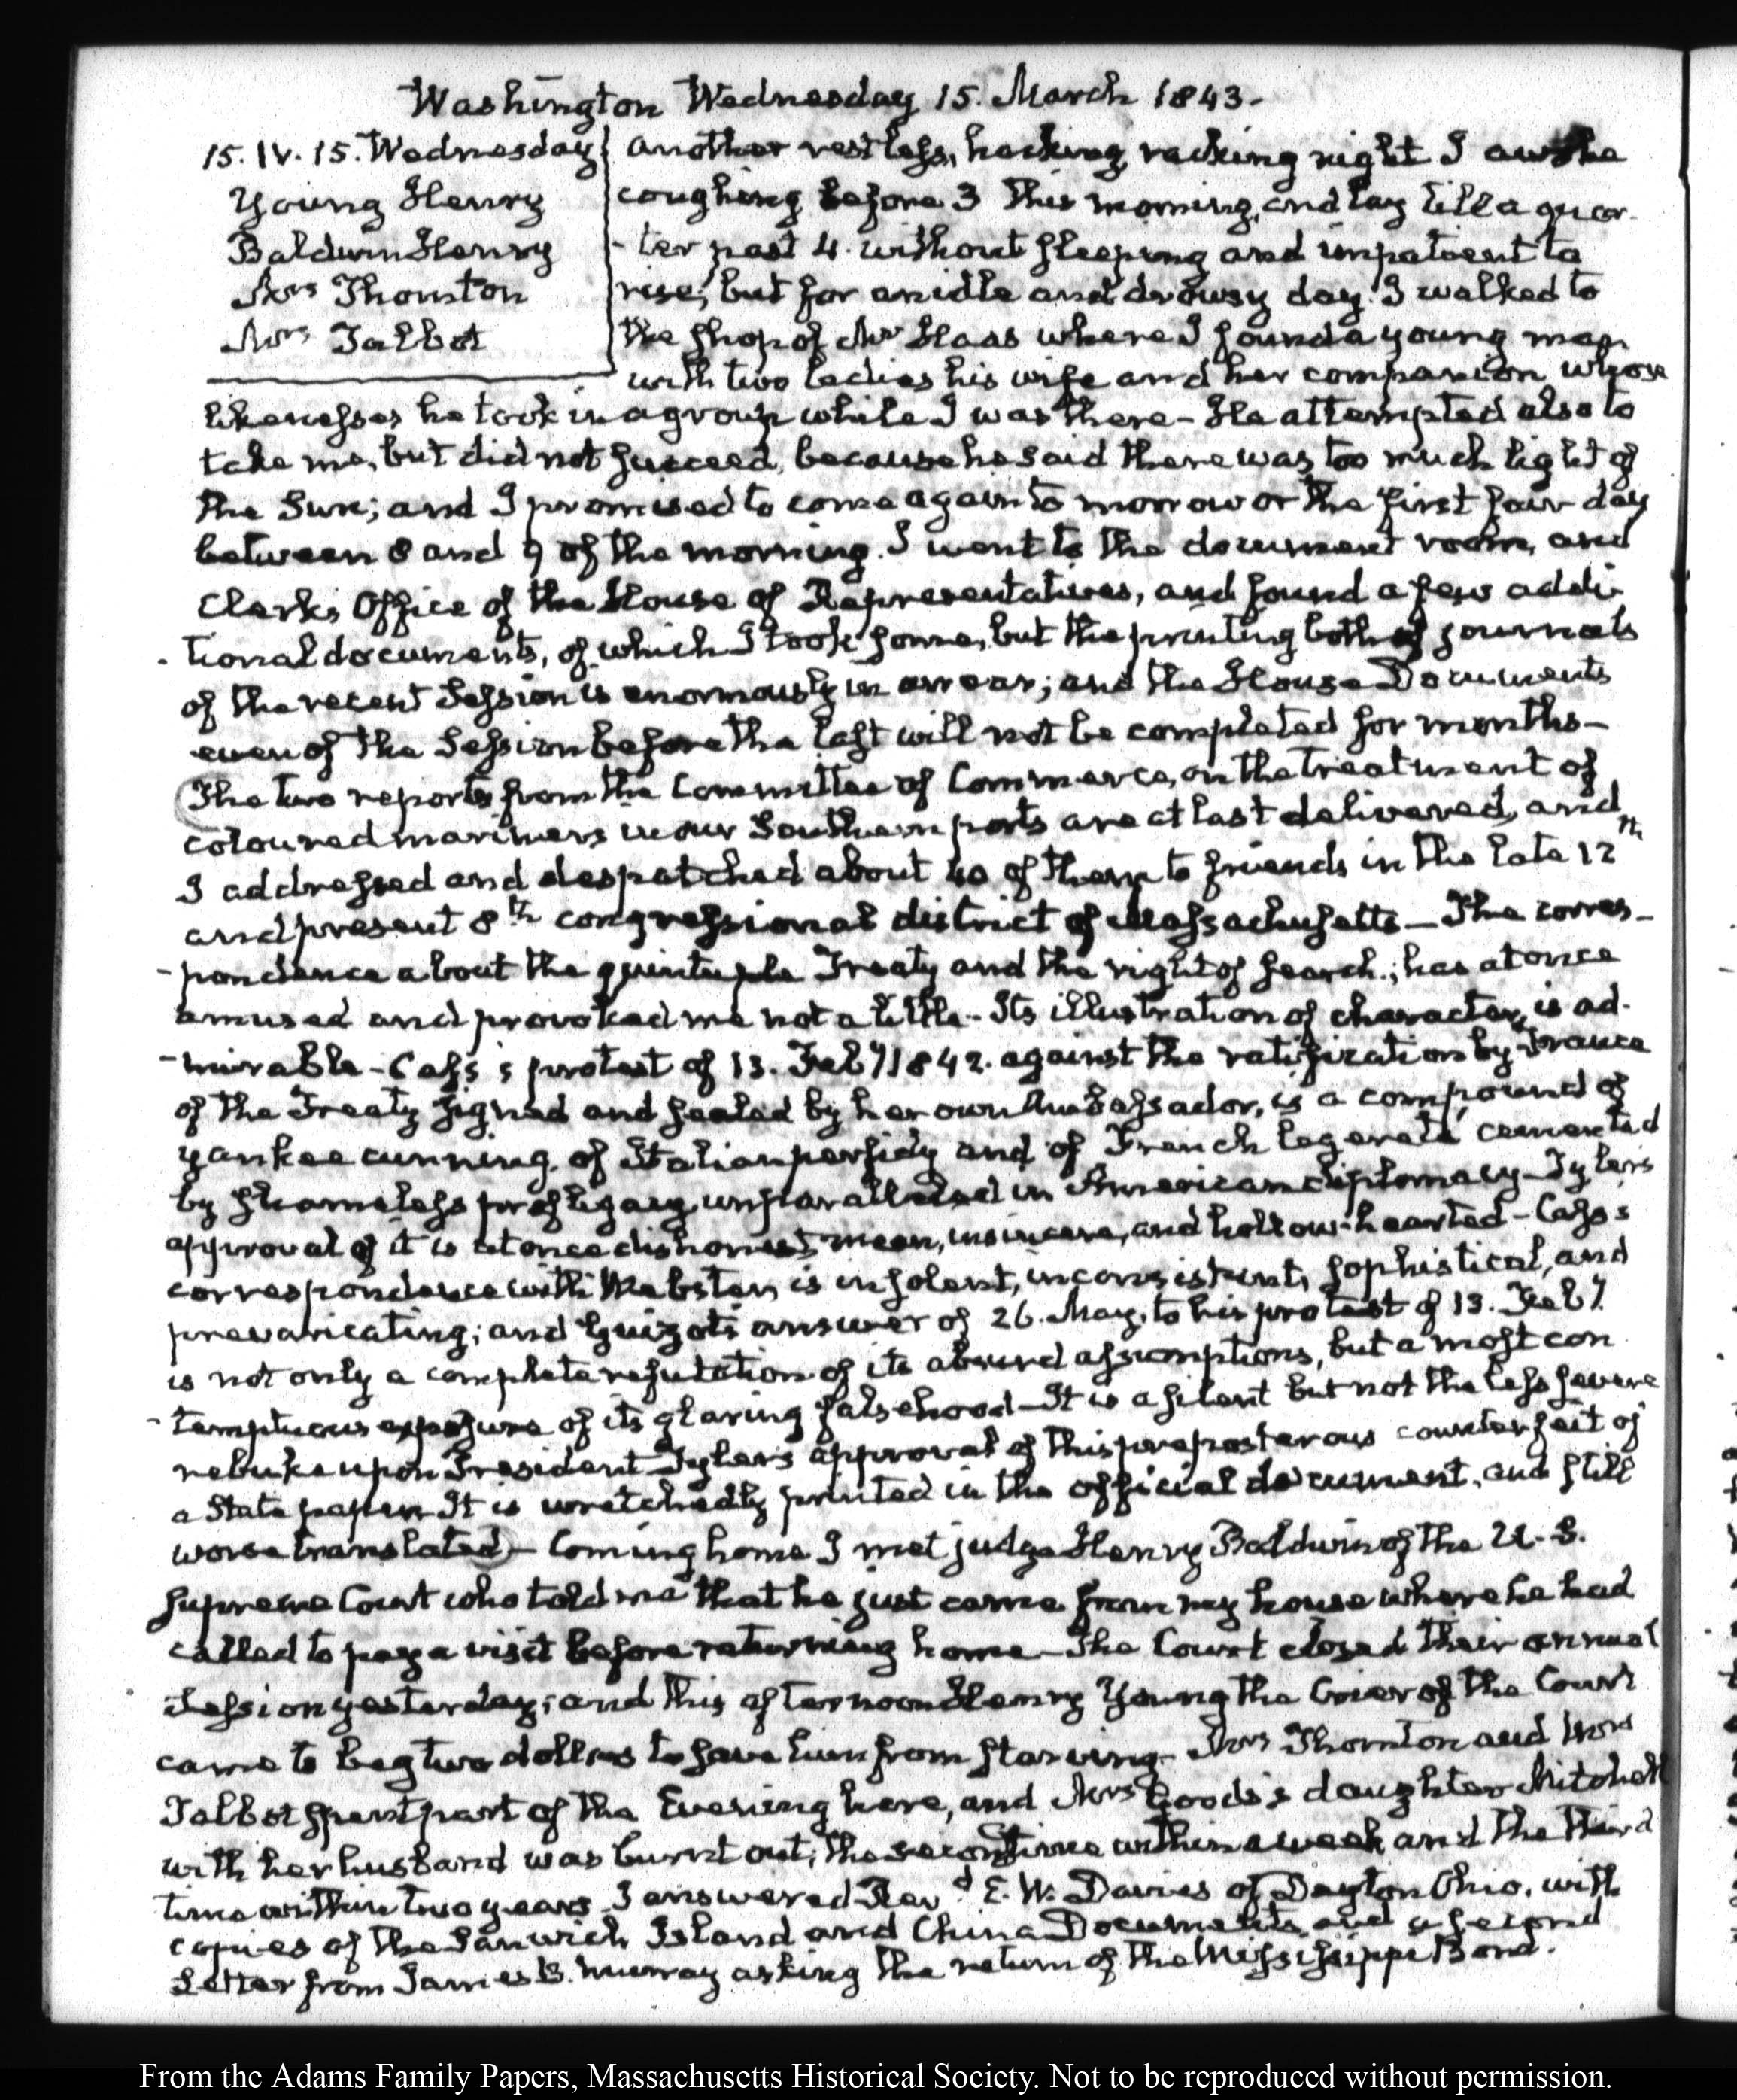 Washington Wednesday 15. March 1843.
15. IV. 15. Wednesday
Young Henry
Baldwin Henry
Mrs Thornton
Mrs Talbot
another restless, hacking, racking night I awoke
coughing before 3 this morning, and lay till a quar-
-ter past 4. without sleeping and impatient to
rise; but for an idle and drowsy day. I walked to
the shop of Mr Haas where I found a young man
with two ladies his wife and her companion whose
likenesses he took in a group while I was there - He attempted also to
take me, but did not succeed, because he said there was too much light of
the Sun; and I promised to come again to morrow or the first fair day
between 8 and 9 of the morning. I went to the document room, and
Clerk's Office of the House of Representatives, and found a few addi-
-tional documents, of which I took some, but the printing both of journals
of the recent Session is enormously in arrear; and the House Documents
even of the Session before the last will not be completed for months -
The two reports from the Committee of Commerce, on the treatment of
coloured mariners in our Southern ports are at last delivered, and
I addressed and despatched about 40 of them to friends in the late 12th
and present 8th congressional district of Massachusetts - The corres-
-pondence about the quintuple Treaty and the right of search; has at once
amused and provoked me not a little - Its illustration of character, is ad-
-mirable - Cass's protest of 13. Feby 1842. against the ratification by France
of the Treaty signed and sealed by her own Ambassador, is a compound of
Yankee cunning, of Italian perfidy and of French legereté cemented
by shameless profligacy unparalleled in American diplomacy - Tyler's
approval of it is at once dishonest, mean, insincere, and hollow-hearted - Cass's
correspondence with Webster, is insolent, inconsistent, sophistical, and
prevaricating; and Guizot's answer of 26. May, to his protest of 13. Feby.
is not only a complete refutation of its absurd assumptions, but a most con
-temptuous exposure of its glaring falsehood - It is a silent but not the less severe
rebuke upon President Tyler's approval of this preposterous counterfeit of
a State paper - It is wretchedly printed in the official document, and still
worse translated - Coming home I met judge Henry Baldwin of the U.S.
Supreme Court who told me that he just came from my house where he had
called to pay a visit before returning home - The Court closed their annual
Session yesterday; and this afternoon Henry Young the Crier of the Court
came to beg two dollars to save him from starving - Mrs Thornton and Mrs
Talbot spent part of the Evening here, and Mrs Goods's daughter Mitchell
with her husband was burnt out, the second time within a week and the third
time within two years. I answered Revd E. W. Davies of Dayton Ohio, with
copies of the Sanwich Island and China Documents, and a second
Letter from James B. Murray asking the return of the Mississippi Bond.
From the Adams Family Papers, Massachusetts Historical Society. Not to be reproduced without permission.